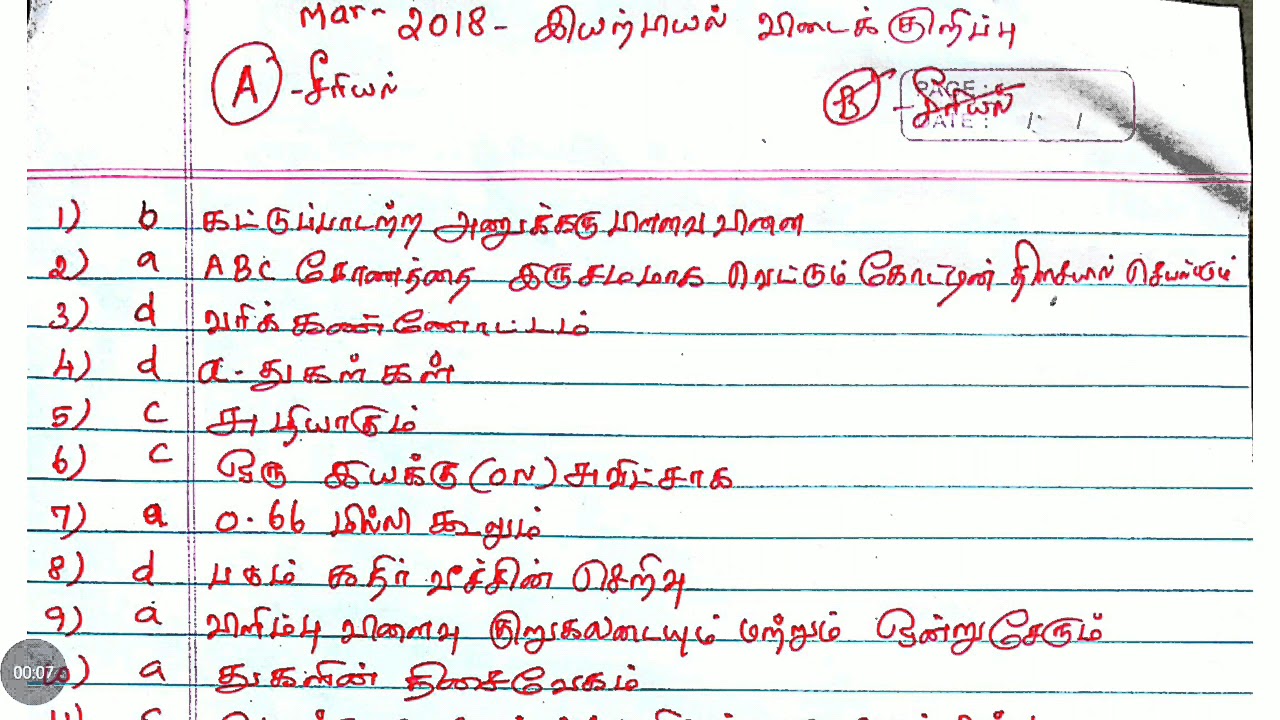 Mar- 2018 - இயற்பியல் விடைக் குறிப்பு
A - சீரியல்
B - சீரியல்
PAGE :
DATE : / /
1) b கட்டுப்பாடற்ற அணுக்கரு பிளவு வினை
2) a ABC கோணத்தை இருசமமாக வெட்டும் கோட்டின் திசையில் செயல்படும்
3) d வரிக் கண்ணோட்டம்
4) d α - துகள்கள்
5) c சுழியாகும்
6) c ஒரு இயக்கு (ON) சுவிட்சாக
7) a 0.66 மில்லி கூலும்
8) d படும் கதிர் வீச்சின் செறிவு
9) a விளிம்பு விளைவு குறுகலடையும் மற்றும் ஒன்று சேரும்
00:07
) a துகளின் திசைவேகம்